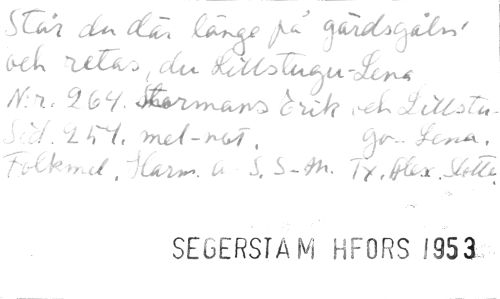 Står du där länge på gärdsgåln'
och retas, du Lillstugu-Lena
N:r. 264. Stormans Erik och Lillstu-
Sid. 254. mel-not. gu-Lena.
Folkmel. Harm. a S. S-M. Tx. Alex. Slotte.
SEGERSTAM HFORS 1953